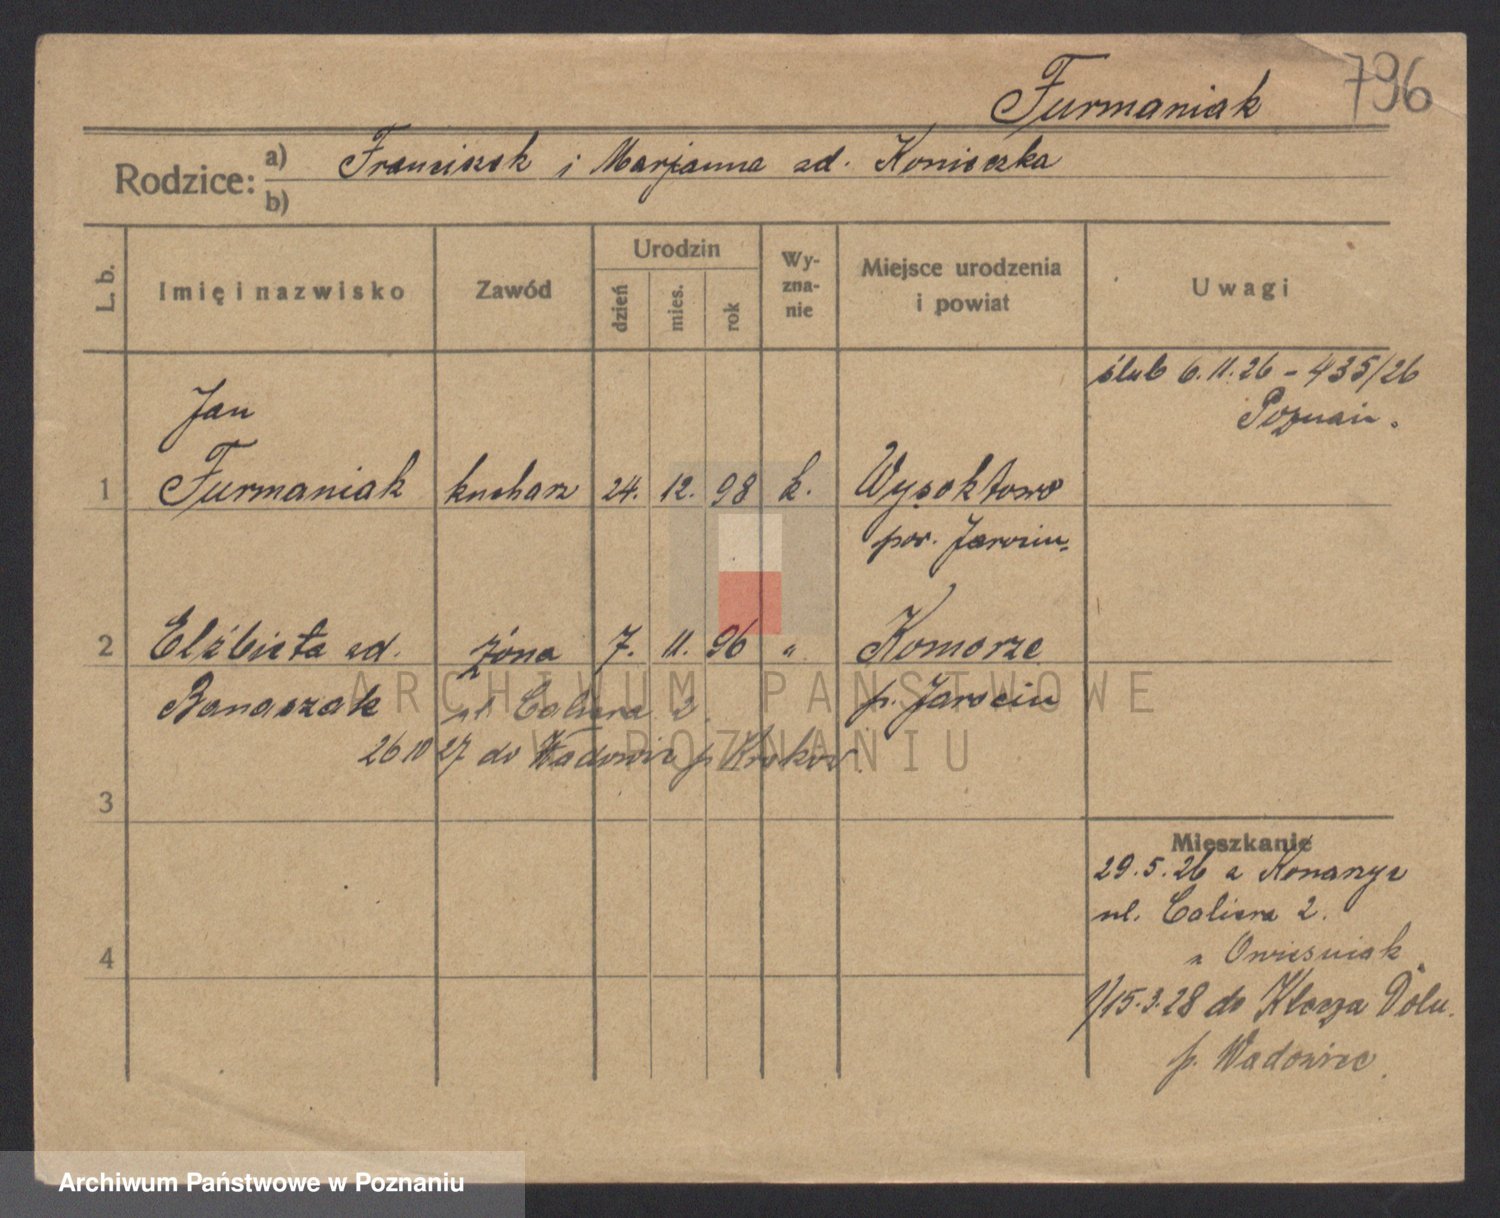 Furmaniak 796
Rodzice: a) Franciszek i Marjanna zd. Konieczka
b)
L. b. Imię i nazwisko Zawód Urodzin dzień mies. rok Wy-zna-nie Miejsce urodzenia i powiat Uwagi
ślub 6.11.26 - 435/26
Poznań.
Jan
1 Furmaniak kucharz 24. 12. 98 k. Wysoktowo
pow. Jarocin
2 Elżbieta zd. żona 7. 11. 96 " Komorze
Banaszak ul Caliera 2. p. Jarocin
26 10 27 do Wadowic p Krakow.
3
Mieszkanie
29.5.26 z Konarzyc
ul. Caliera 2.
4
15.3.28 do Klecza Dolu.
p. Wadowice.
ARCHIWUM PAŃSTWOWE
W POZNANIU
Archiwum Państwowe w Poznaniu